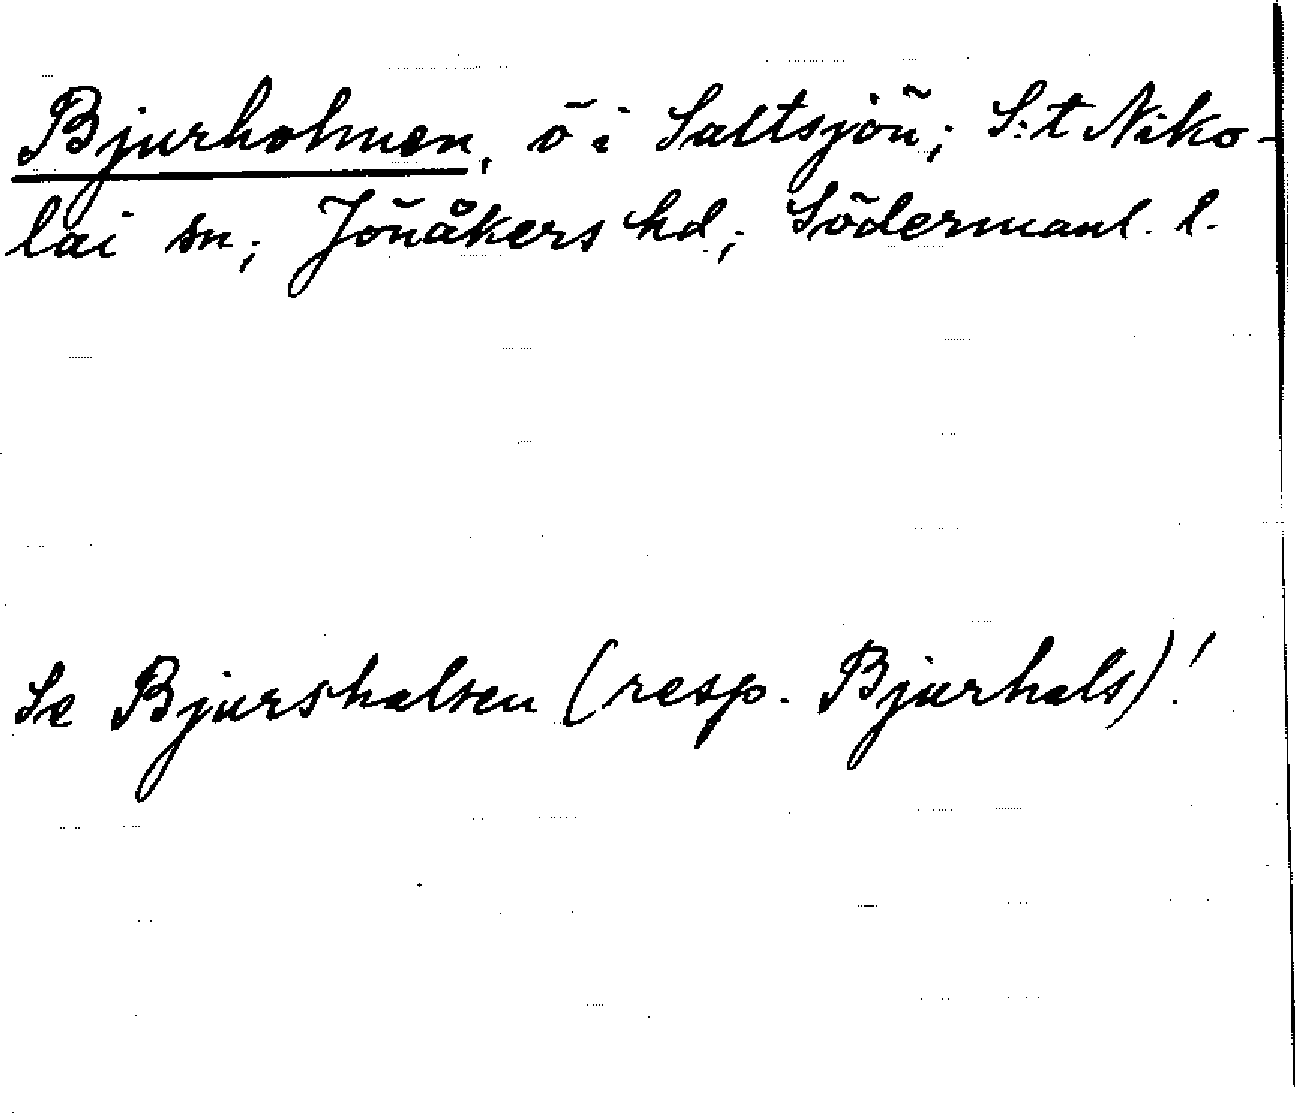 Bjurholmen, ö i Saltsjön; S:t Niko-
lai sn; Jönåkers hd; Södermanl. l.
Se Bjurshalsen (resp. Bjurhals)!